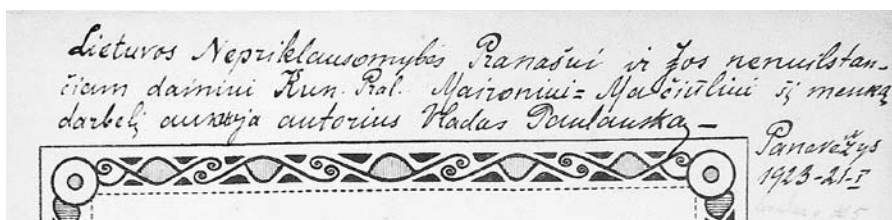 Lietuvos Nepriklausomybės Pranašui ir Jos nenuilstan-
čiam dainiui Kun. Pral. Maironiui-Mačiuliui šį menką
darbelį aukoja autorius Vladas Paulauskas
Panevėžys
1923-21-I